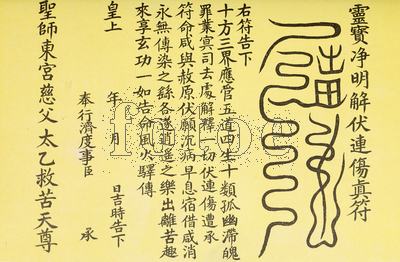 靈寶净明解伏連傷真符
右符告下
十方三界應管五道四生十類孤幽滯魄
罪業冥司去處解釋一切伏連傷遭承
符命咸與赦原伏願沉病早息宿借咸消
永無傳染之各遂逍遥之樂出離苦趣
來享玄功一如誥命風火驛傳
皇上 年 月 日吉時告下
奉行濟度事臣 承
聖師東宮慈父太乙救苦天尊